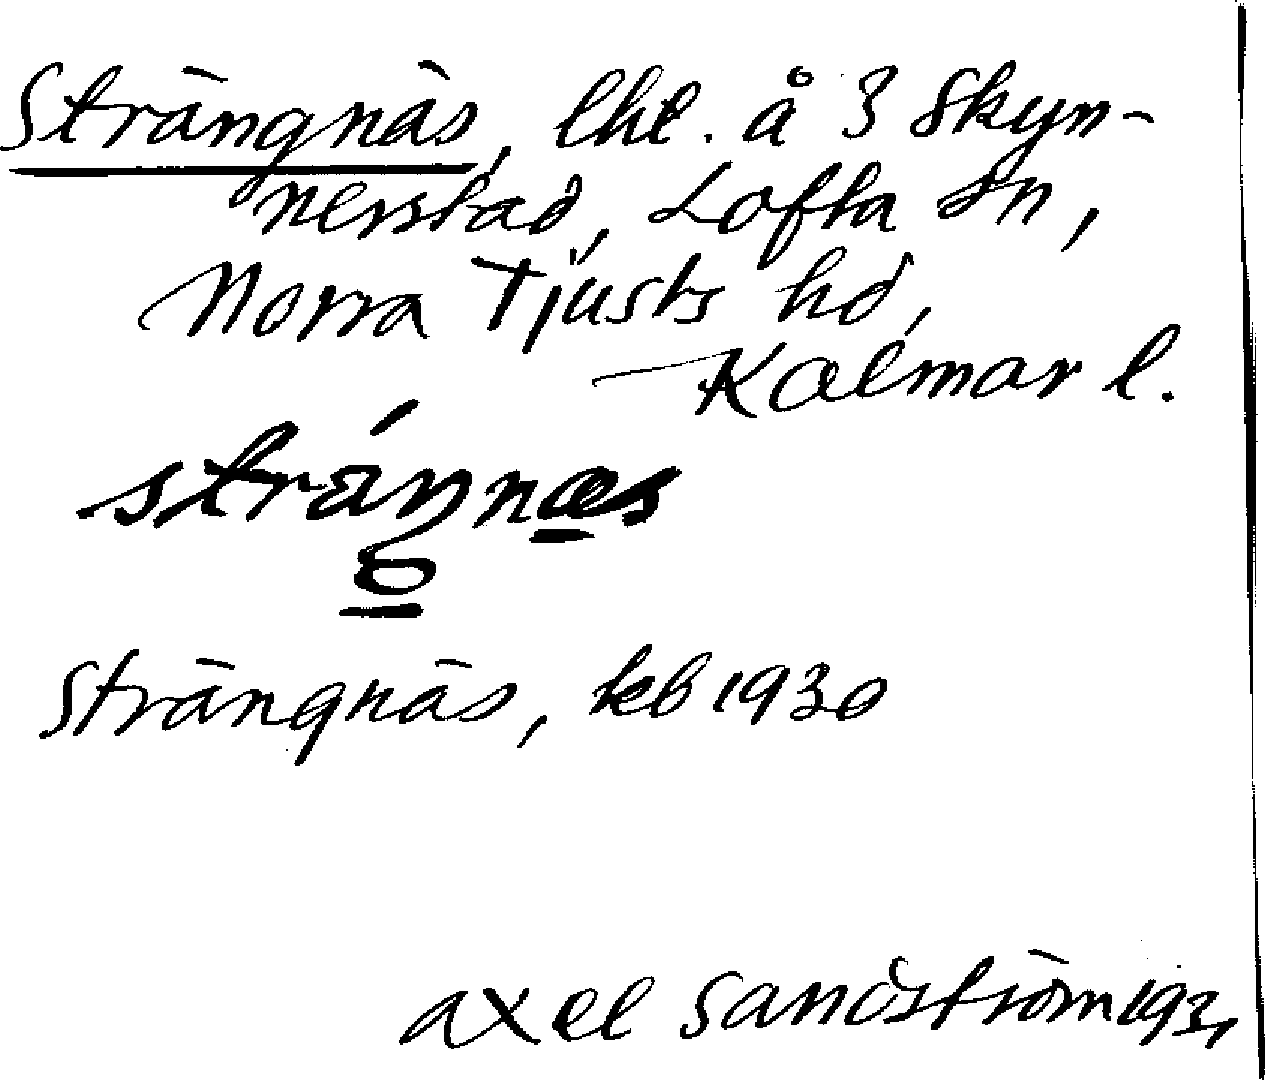 Strängnäs, lht. å 3 Skyn-
nerstad, Lofta sn,
Norra Tjusts hd,
Kalmar l.
Strängnäs, kb 1930
Axel Sandström 1931